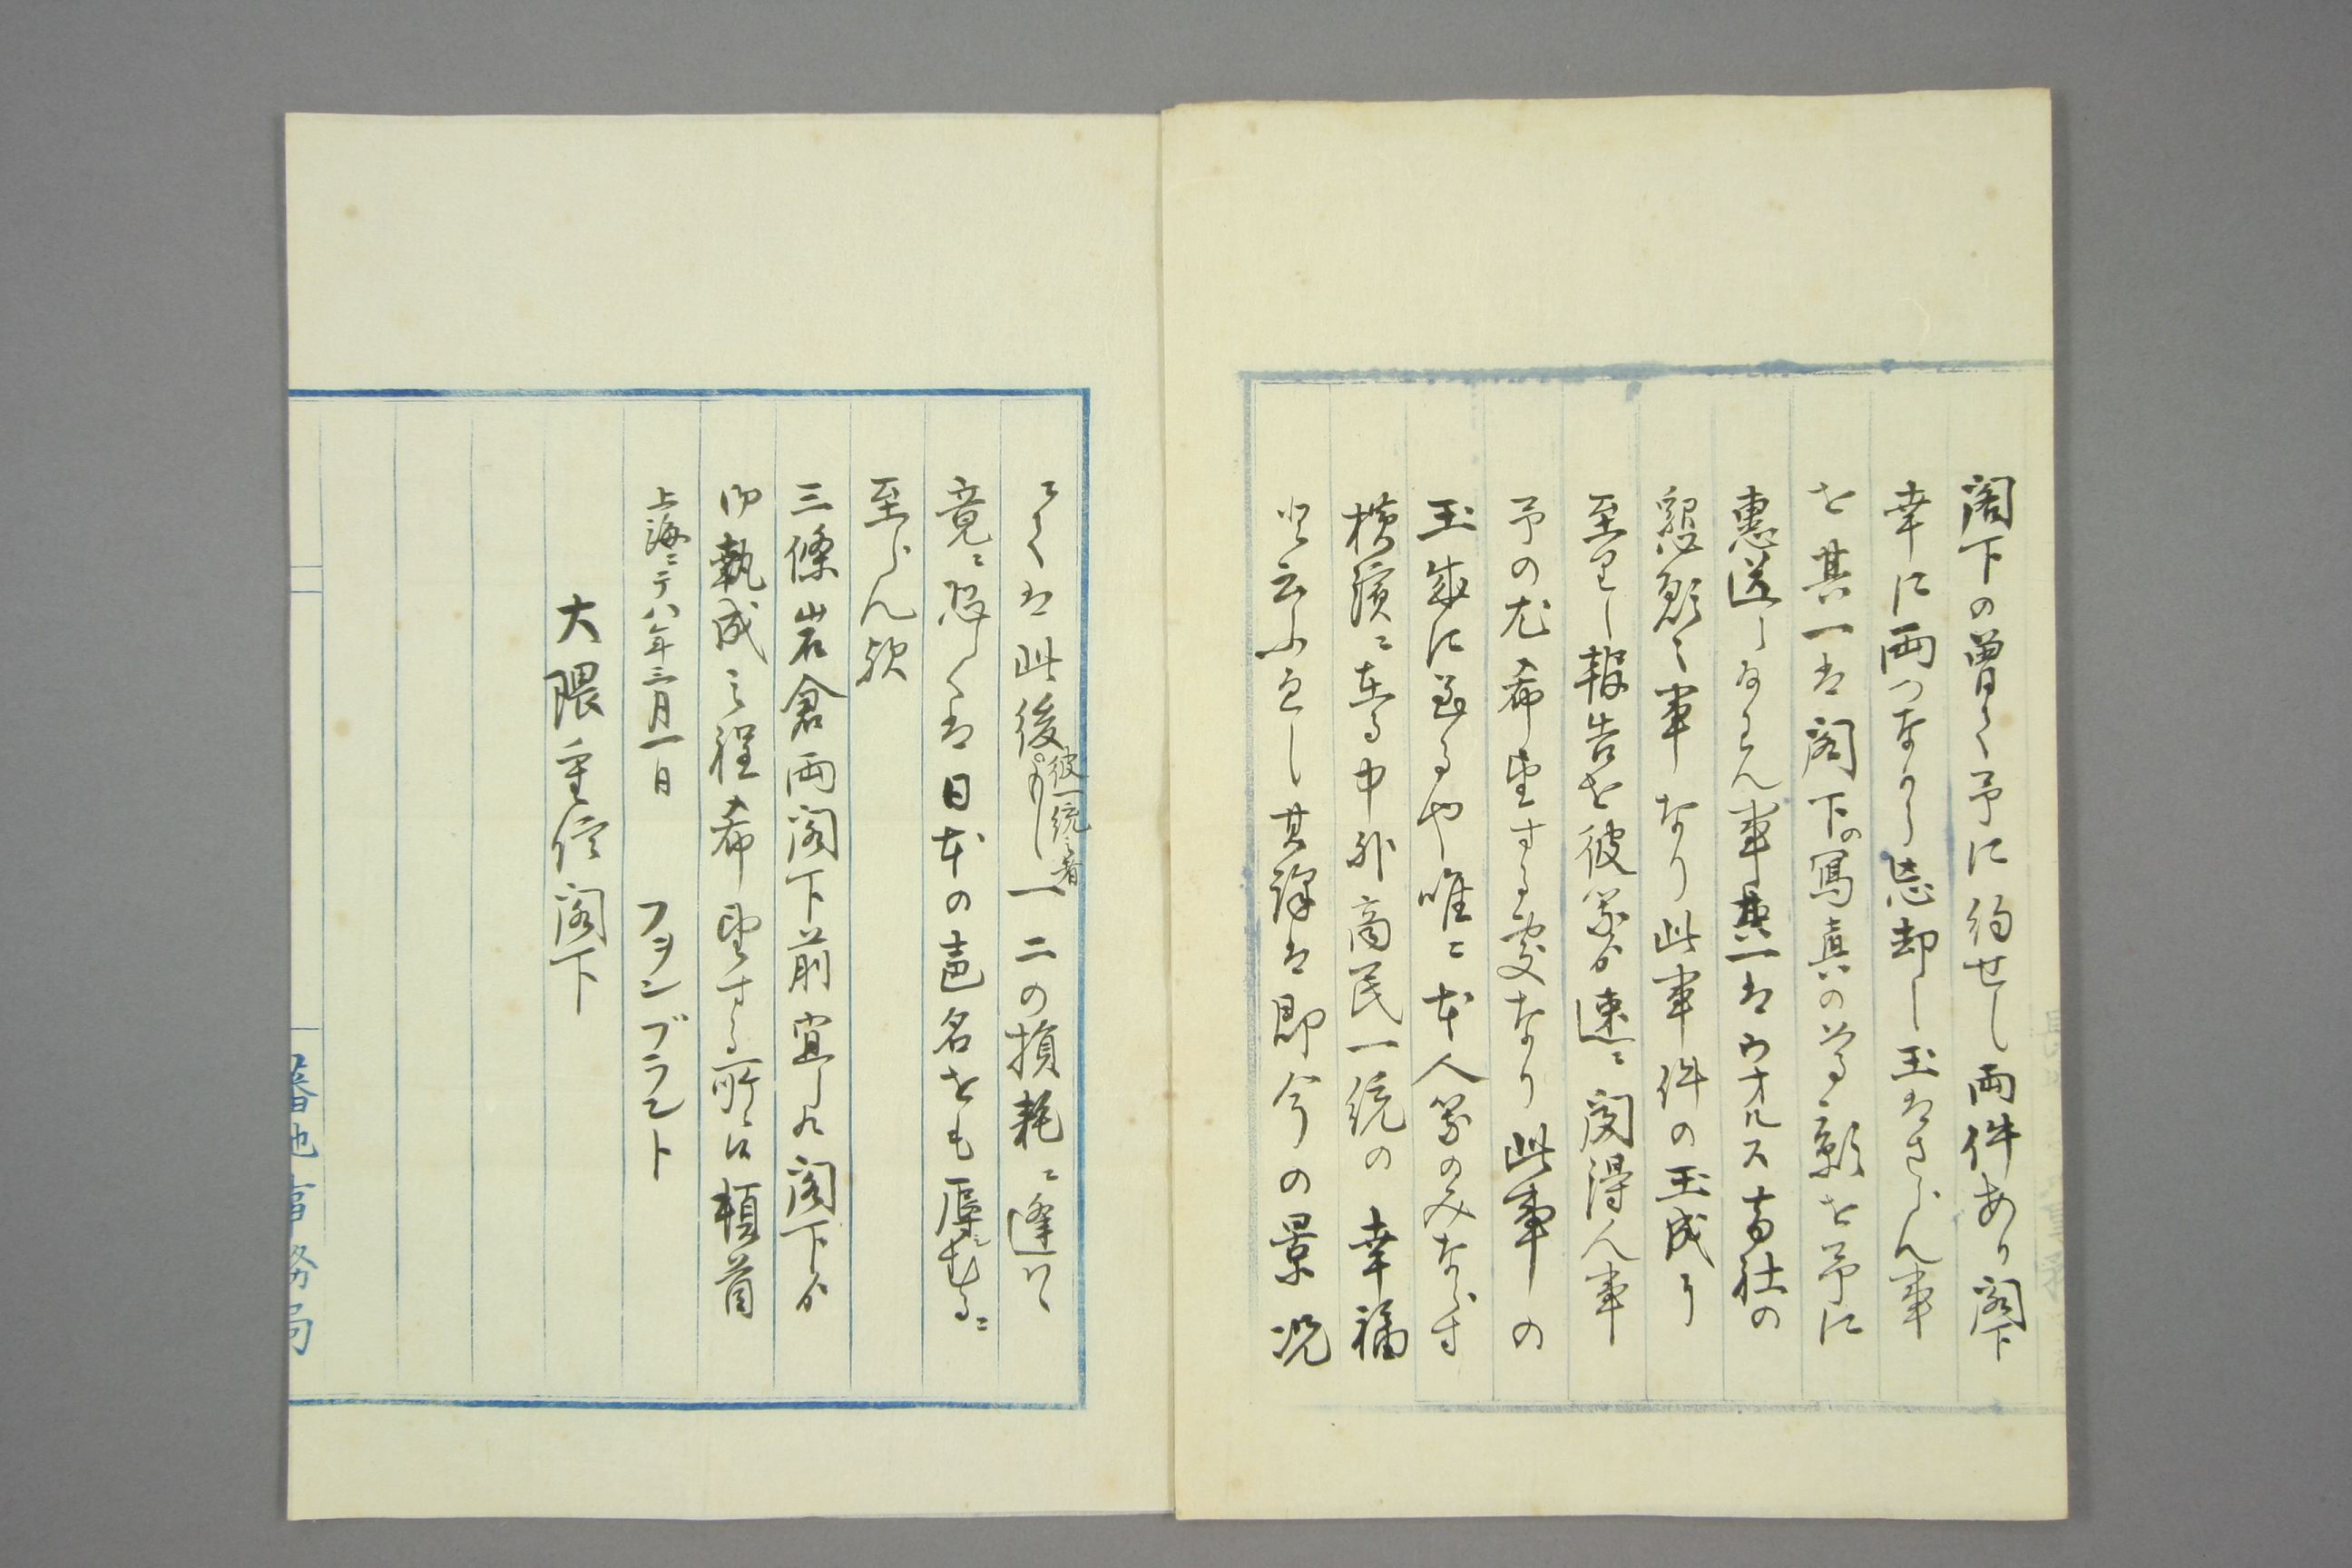 閣下の曽て予に約せし両件あり閣下
幸に両つながら忘却し玉はさらん事
を其一は閣下の寫真の尊影を予に
惠送しなるらん事其一はウオルス商社の
懇願の事なり此事件の玉成り
至りし報告を彼等が速ニ聞得ん事
予の尤希望する處なり此事の
玉成に至るや唯ニ本人等のみならす
横濱ニ在る中外商民一統の幸福
と云ふへし其譯は即今の景況
にては此後彼一統の者一二の損耗ニ逢はゝ
竟ニ恐らくは日本の声名をも辱しむるニ
至らん歟
三條岩倉両閣下前宜しく閣下が
御執成之程希望する所に候頓首
上海ニテ八年三月一日　フヲンブラント
大隈重信閣下
蕃地事務局